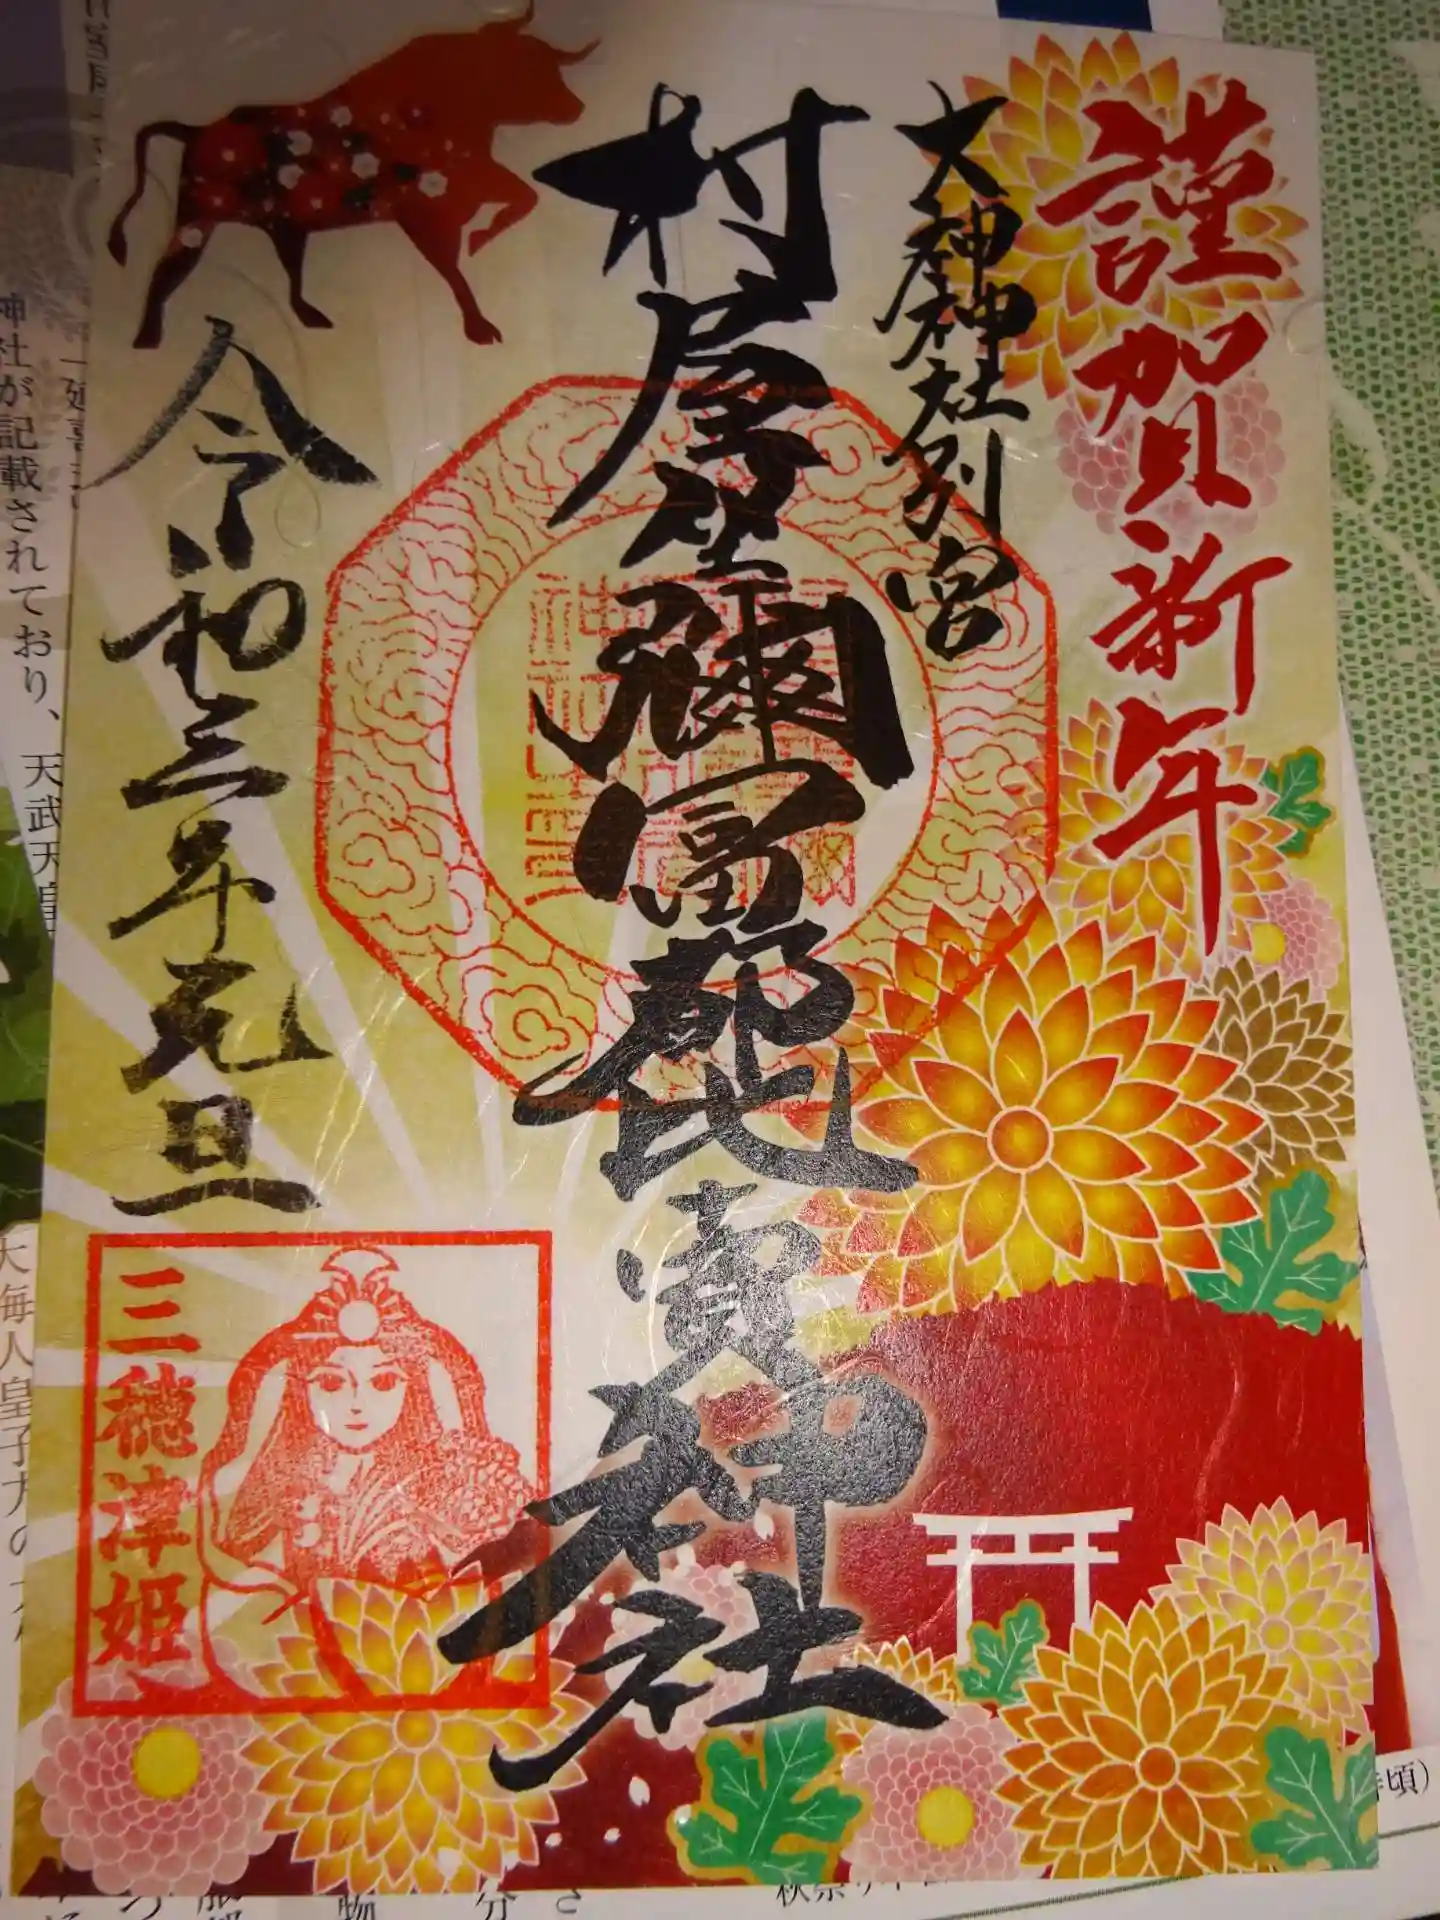 謹賀新年
大神神社別宮
村屋坐彌冨都比賣神社
令和三年元旦
三穂津姫
神社が記載されており、天武天皇
大海人皇子方の
頃）
物
分
さ